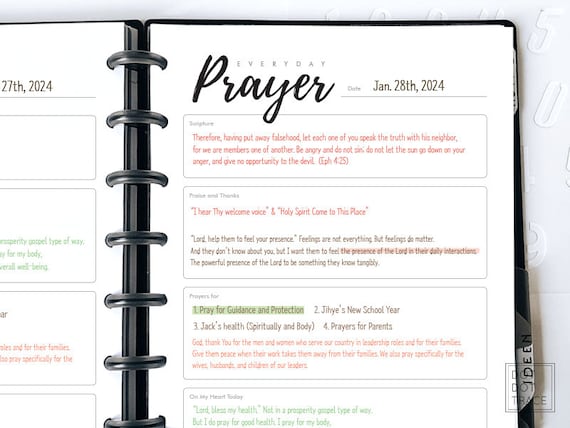 27th, 2024
prosperity gospel type of way.
ay for my body,
overall well-being.
ar
roles and for their families.
so pray specifically for the
EVERYDAY
Prayer
Date Jan. 28th, 2024
Scripture
Therefore, having put away falsehood, let each one of you speak the truth with his neighbor,
for we are members one of another. Be angry and do not sin; do not let the sun go down on your
anger, and give no opportunity to the devil. (Eph 4:25)
Praise and Thanks
"I hear Thy welcome voice" & "Holy Spirit Come to This Place"
"Lord, help them to feel your presence." Feelings are not everything. But feelings do matter.
And they don't know about you, but I want them to feel the presence of the Lord in their daily interactions.
The powerful presence of the Lord to be something they know tangibly.
Prayers for
1. Pray for Guidance and Protection 2. Jihye's New School Year
3. Jack's health (Spiritually and Body) 4. Prayers for Parents
God, thank You for the men and women who serve our country in leadership roles and for their families.
Give them peace when their work takes them away from their families. We also pray specifically for the
wives, husbands, and children of our leaders.
On My Heart Today
"Lord, bless my health." Not in a prosperity gospel type of way,
But I do pray for good health. I pray for my body,
IDEEN
DOT
TRACE